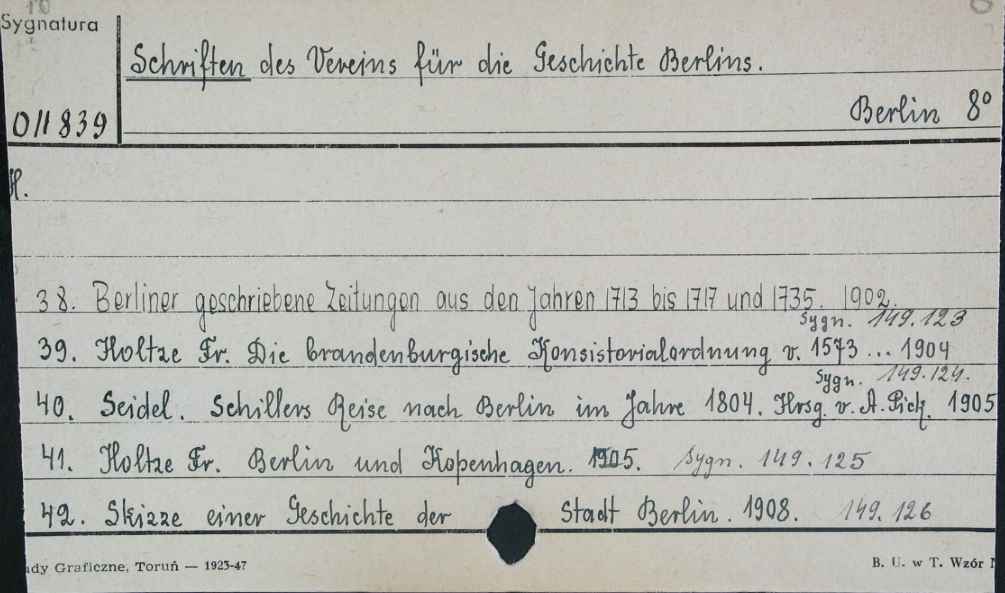 Sygnatura
Schriften des Vereins für die Geschichte Berlins.
Berlin 8°
011839
H.
38. Berliner geschriebene Zeitungen aus den Jahren 1713 bis 1717 und 1735. 1902.
Sygn. 149.123
39. Holtze Fr. Die brandenburgische Konsistorialordnung v. 1573 ... 1904
Sygn. 149.124.
40. Seidel. Schillers Reise nach Berlin im Jahre 1804. Hrsg. v. A. Pick. 1905
41. Holtze Fr. Berlin und Kopenhagen. 1905. Sygn. 149.125
42. Skizze einer Geschichte der Stadt Berlin. 1908. 149.126
ady Graficzne, Toruń — 1923-47
B. U. w T. Wzór